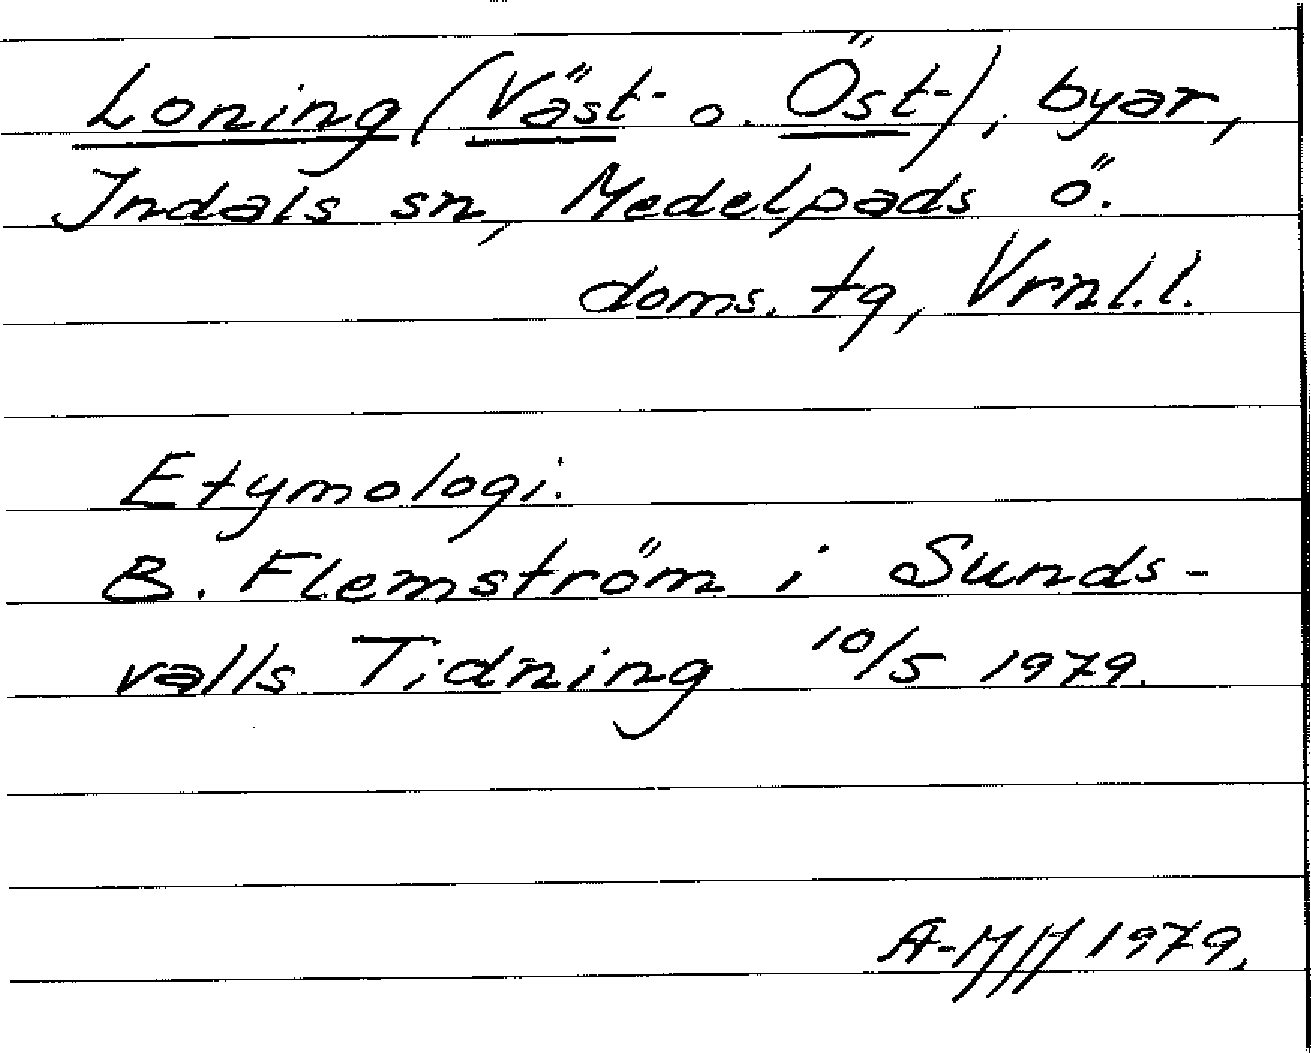 Loning (Väst- o. Öst-), byar,
Indals sn, Medelpads ö.
doms. tg, Vrnl.l.
Etymologi.
B. Flemström i Sunds-
valls Tidning 10/5 1979.
A-MH 1979.